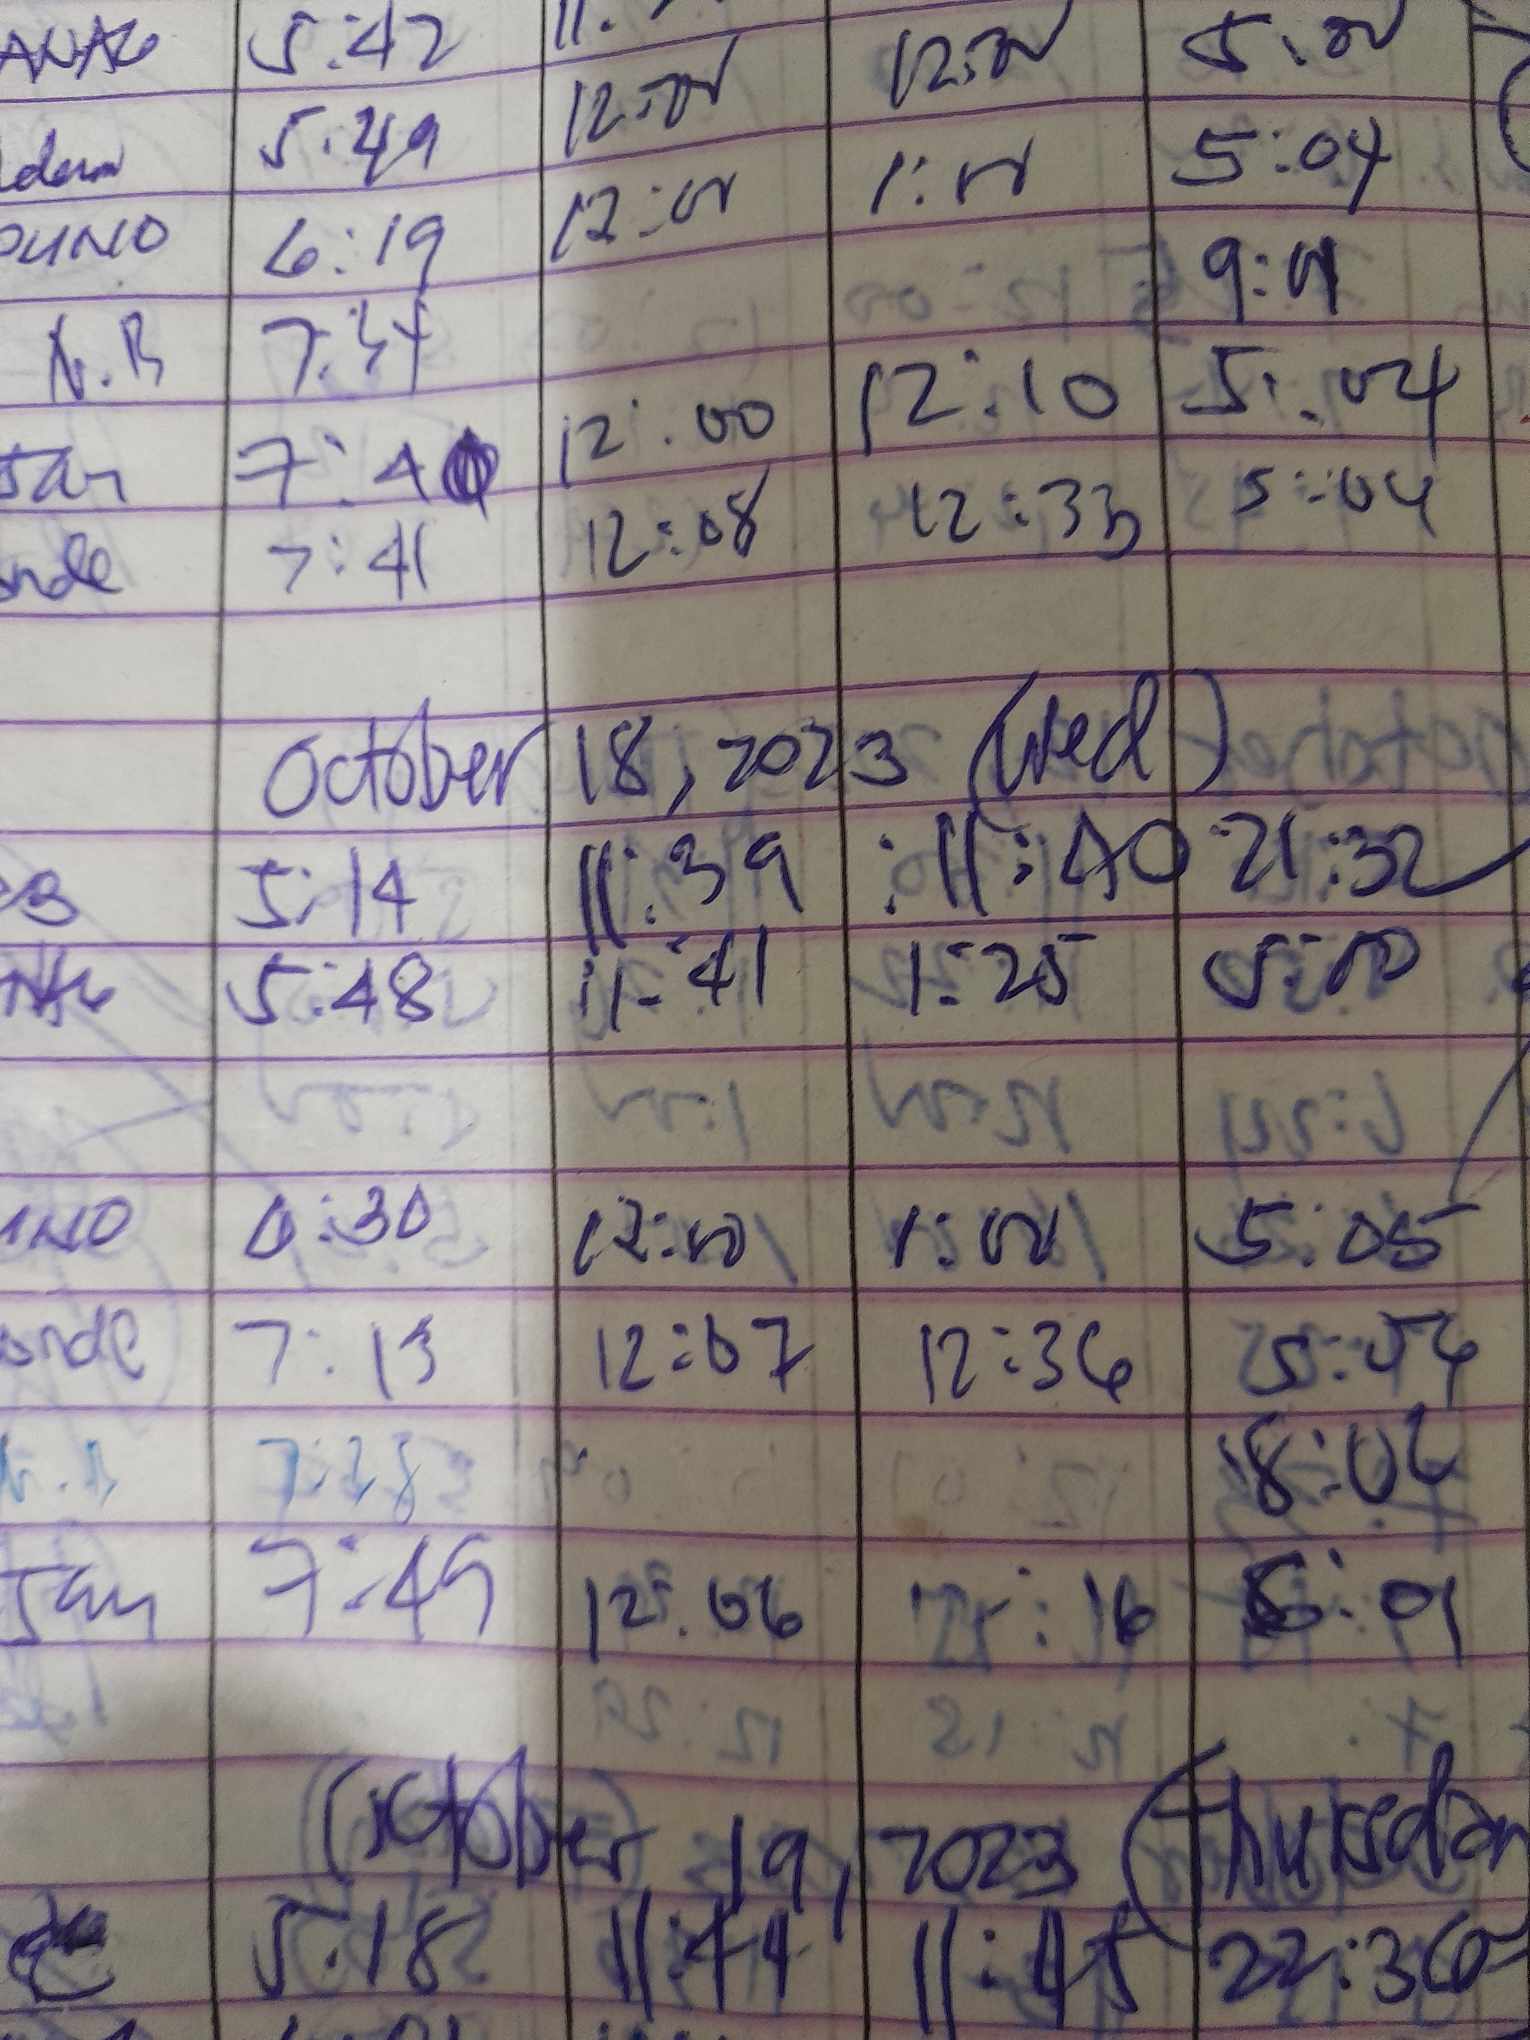 5:42 12:00 5:00
5:49 12:00 1:00 5:04
6:19 12:00 9:01
N.B 7:34
Jan 7:40 12:00 12:10 5:04
7:41 12:08 12:33 5:04
October 18, 2023 (Wed)
5:14 11:39 :11:40 21:32
5:48 11:41 1:25 5:00
6:30 12:00 1:00 5:05
7:13 12:07 12:36 5:04
7:38 8:02
Jan 7:49 12:06 12:16 5:01
October 19, 2023 (Thursday
5:18 11:44 11:45 22:36